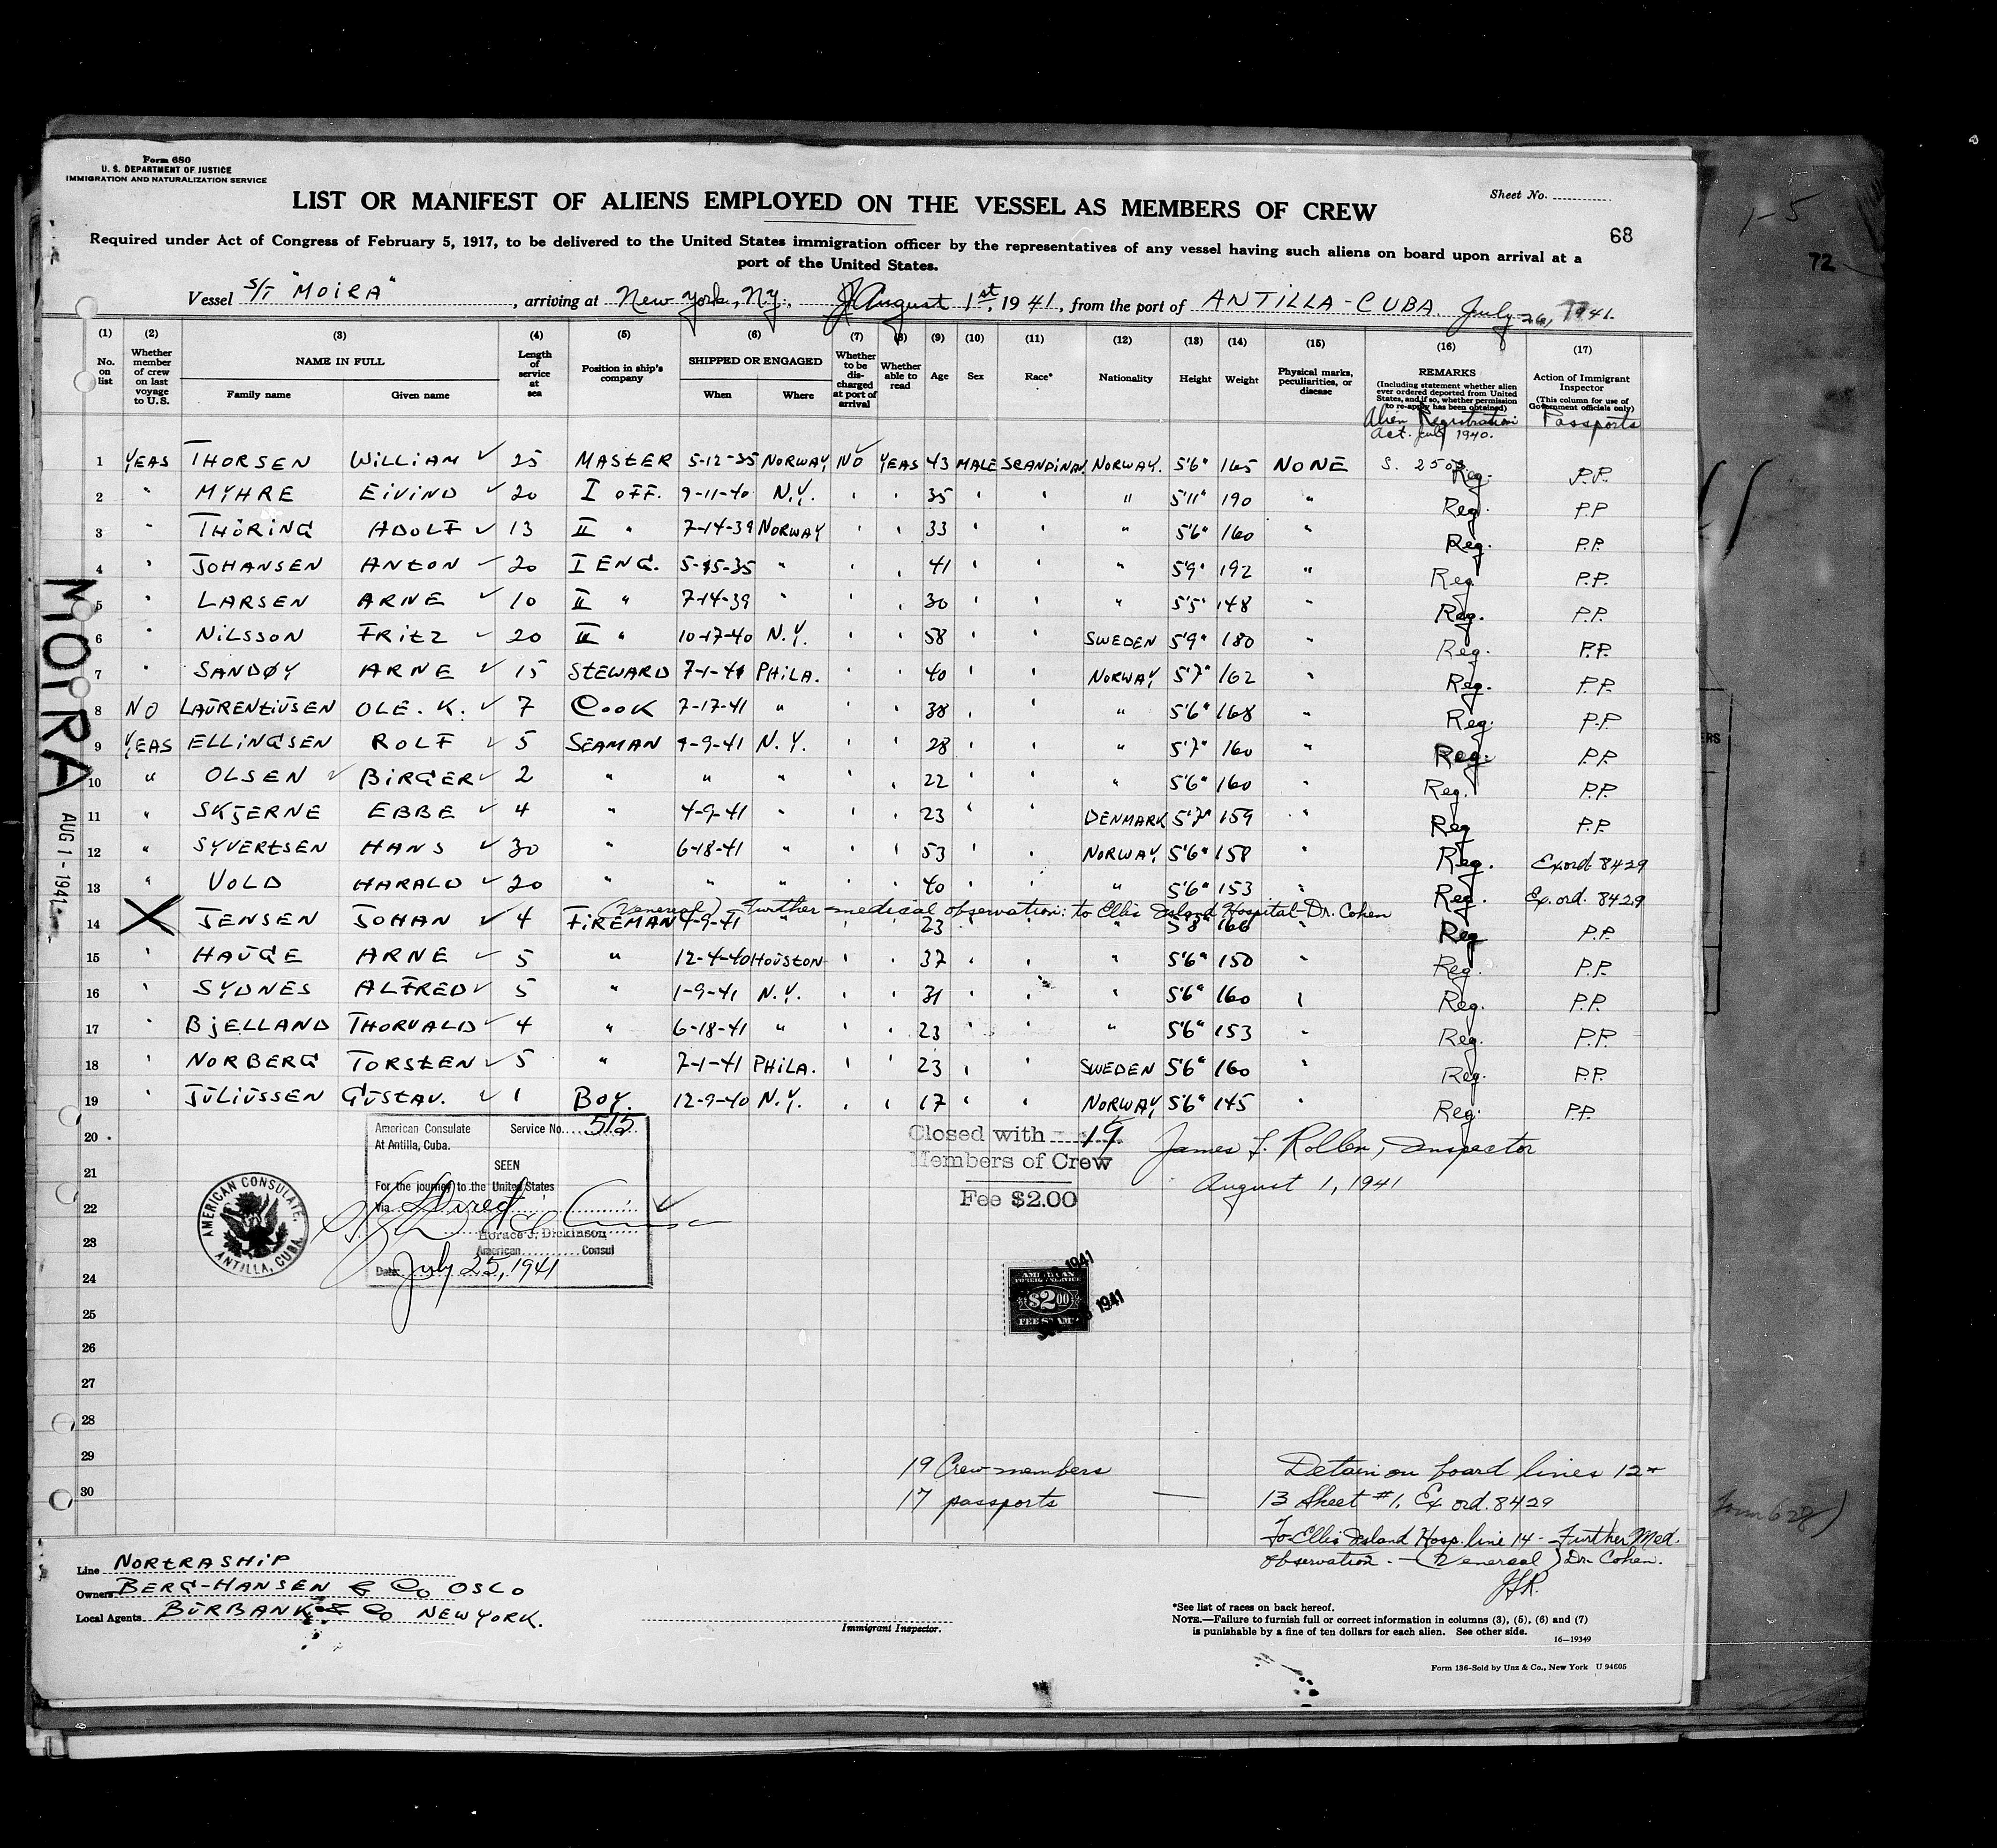 Form 680
U. S. DEPARTMENT OF JUSTICE
IMMIGRATION AND NATURALIZATION SERVICE
Sheet No.
LIST OR MANIFEST OF ALIENS EMPLOYED ON THE VESSEL AS MEMBERS OF CREW
68
1-5
72
Required under Act of Congress of February 5, 1917, to be delivered to the United States immigration officer by the representatives of any vessel having such aliens on board upon arrival at a
port of the United States.
Vessel S/T "MOIRA", arriving at New York, N.Y., August 1st, 1941, from the port of ANTILLA-CUBA. July 26, 1941.
(1) (2) (3) (4) (5) (6) (7) (8) (9) (10) (11) (12) (13) (14) (15) (16) (17)
No. on list
Whether member of crew on last voyage to U.S.
NAME IN FULL
Family name
Given name
Length of service at sea
Position in ship's company
SHIPPED OR ENGAGED
When
Where
Whether to be discharged at port of arrival
Whether able to read
Age
Sex
Race*
Nationality
Height
Weight
Physical marks, peculiarities, or disease
REMARKS
(Including statement whether alien ever ordered deported from United States, and if so, whether permission to re-apply has been obtained)
Action of Immigrant Inspector
(This column for use of Government officials only)
Alien Registration
Act. July 1940.
Passports
1 YEAS THORSEN WILLIAM ✓ 25 MASTER 5-12-35 NORWAY NO YEAS 43 MALE SCANDINAV. NORWAY. 5'6" 165 NONE Reg. P.P.
2 " MYHRE EIVIND ✓ 20 I OFF. 9-11-40 N.Y. " " 35 " " " 5'11" 190 " Reg. P.P
3 " THÖRING ADOLF ✓ 13 II " 7-14-39 NORWAY " " 33 " " " 5'6" 160 " Reg. P.P.
4 " JOHANSEN ANTON ✓ 20 I ENG. 5-15-35 " " " 41 " " " 5'9" 192 " Reg P.P.
5 " LARSEN ARNE ✓ 10 II " 7-14-39 " " " 30 " " " 5'5" 148 " Reg. P.P.
6 " NILSSON FRITZ ✓ 20 III " 10-17-40 N.Y. " " 58 " " SWEDEN 5'9" 180 " Reg. P.P.
7 " SANDØY ARNE ✓ 15 STEWARD 7-1-41 PHILA. " " 40 " " NORWAY 5'7" 162 " Reg. P.P.
8 NO LAURENTIUSEN OLE. K. ✓ 7 COOK 7-17-41 " 38 " " " 5'6" 168 " Reg. P.P
9 YEAS ELLINGSEN ROLF ✓ 5 SEAMAN 9-41 N.Y. " " 28 " " " 5'7" 160 " Reg. P.P.
10 " OLSEN ✓ BIRGER ✓ 2 " " " " " 22 " " " 5'6" 160 " Reg. P.P.
11 " SKJERNE EBBE ✓ 4 " 4-9-41 " " " 23 " " DENMARK 5'7" 159 " Reg P.P.
12 " SYVERTSEN HANS ✓ 30 " 6-18-41 " " " 53 " " NORWAY 5'6" 158 " Reg. Ex ord. 8429
13 " VOLD HARALD ✓ 20 " " " " " 40 " " " 5'6" 153 " Reg. Ex. ord. 8429
(Venereal) Further medical observation: to Ellis Island Hospital-Dr. Cohen
14 X JENSEN JOHAN ✓ 4 FIREMAN 4-9-41 " " " 23 " " " 5'8" 166 " Reg P.P.
15 " HAUGE ARNE ✓ 5 " 12-4-40 HOUSTON " " 37 " " " 5'6" 150 " Reg. P.P.
16 " SYDNES ALFRED ✓ 5 " 1-9-41 N.Y. " " 31 " " " 5'6" 160 " Reg. P.P.
17 " BJELLAND THORVALD ✓ 4 " 6-18-41 " " " 23 " " " 5'6" 153 " Reg. P.P.
18 " NORBERG TORSTEN ✓ 5 " 7-1-41 PHILA. " " 23 " " SWEDEN 5'6" 160 " Reg. P.P.
19 " JULIUSSEN GUSTAV. ✓ 1 BOY. 12-9-40 N.Y. " " 17 " " NORWAY 5'6" 145 " Reg. P.P.
20
21
22
23
24
25
26
27
28
29
30
MOIRA
AUG 1-1941
American Consulate Service No. 515
At Antilla, Cuba.
SEEN
For the journey to the United States
Via Direct
Horace J. Dickinson
American Consul
Date July 25, 1941
AMERICAN CONSULATE, ANTILLA, CUBA
Closed with 19
Members of Crew
Fee $2.00
James F. Rollen, Inspector
August 1, 1941
AMERICAN
FOREIGN SERVICE
$2.00
FEE STAMP
1941
1941
19 Crew members
17 passports
Detain on board lines 12 +
13 Sheet #1. Ex ord. 8429
To Ellis Island Hosp. line 14 - Further Med.
observation. - (Venereal) Dr. Cohen.
JFR.
Form 628)
Line NORTRASHIP
Owners BERG-HANSEN & Co OSLO
Local Agents BURBANK & Co NEW YORK.
Immigrant Inspector.
*See list of races on back hereof.
NOTE.—Failure to furnish full or correct information in columns (3), (5), (6) and (7)
is punishable by a fine of ten dollars for each alien. See other side.
16—19349
Form 136-Sold by Unz & Co., New York U 94605